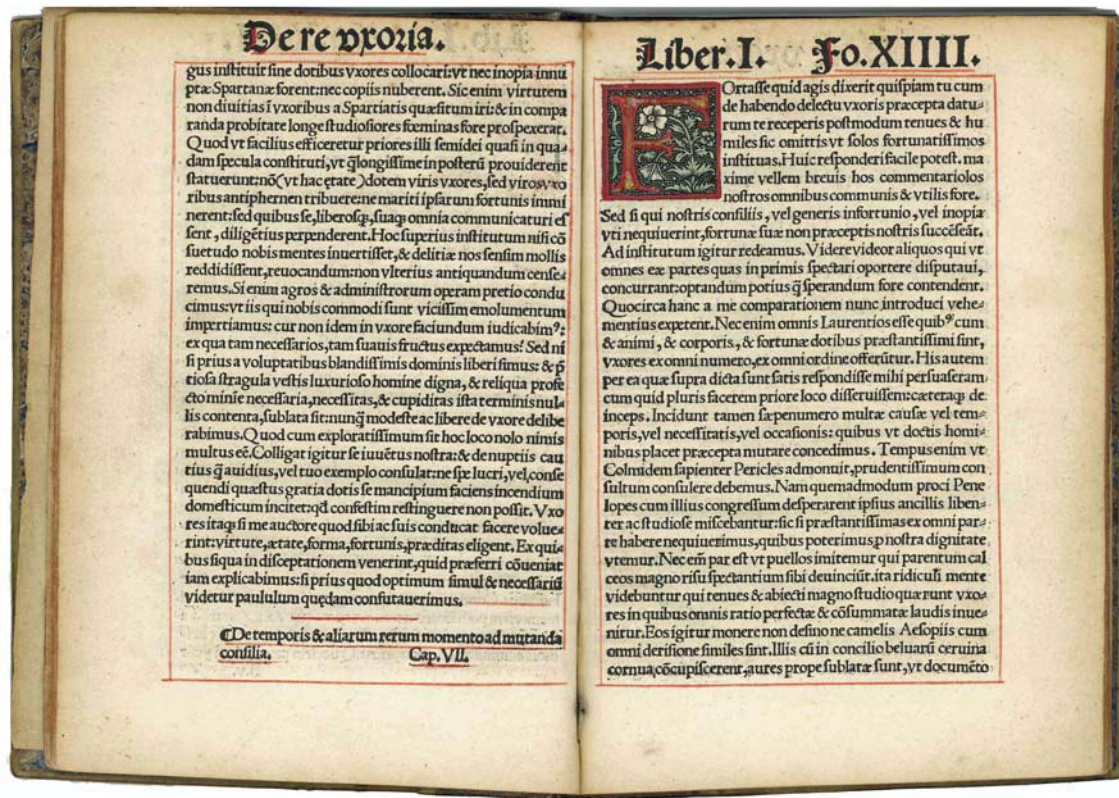 De re vxoria.
gus instituit sine dotibus vxores collocari: vt nec inopia innu
ptæ Spartanæ forent: nec copiis nuberent. Sic enim virtutem
non diuitias ĩ vxoribus a Spartiatis quæsitum iri: & in compa
randa probitate longe studiosiores fœminas fore prospexerat.
Quod vt facilius efficeretur priores illi semidei quasi in qua-
dam specula constituti, vt q̃longissime in posterũ prouiderent
statuerunt: nõ (vt hac ętate) dotem viris vxores, sed viros vxo
ribus antiphernen tribuere: ne mariti ipsarum fortunis immi
nerent: sed quibus se, liberosq;, suaq; omnia communicaturi es
sent, diligẽtius perpenderent. Hoc superius institutum nisi cõ
suetudo nobis mentes inuertisset, & delitiæ nos sensim mollis
reddidissent, reuocandum: non vlterius antiquandum cense-
remus. Si enim agros & administrorum operam pretio condu
cimus: vt iis qui nobis commodi sunt vicissim emolumentum
impertiamus: cur non idem in vxore faciundum iudicabimꝰ:
ex qua tam necessarios, tam suauis fructus expectamus? Sed ni
si prius a voluptatibus blandissimis dominis liberi simus: & p̃
tiosa stragula vestis luxurioso homine digna, & reliqua profe
cto minĩe necessaria, necessitas, & cupiditas ista terminis nul-
lis contenta, sublata sit: nunq̃ modeste ac libere de vxore delibe
rabimus. Quod cum exploratissimum sit hoc loco nolo nimis
multus eẽ. Colligat igitur se iuuẽtus nostra: & de nuptiis cau
tius q̃ auidius, vel tuo exemplo consulat: ne spe lucri, vel, conse
quendi quæstus gratia dotis se mancipium faciens incendium
domesticum incitet: qd̃ confestim restinguere non possit. Vxo
res itaq; si me auctore quod sibi ac suis conducat facere volue-
rint: virtute, ætate, forma, fortunis, præditas eligent. Ex qui-
bus siqua in disceptationem venerint, quid præferri cõueniat
iam explicabimus: si prius quod optimum simul & necessariũ
videtur paululum quędam confutauerimus.
¶De temporis & aliarum rerum momento ad mutanda
consilia. Cap. VII.
Liber. I. Fo. XIIII.
FOrtasse quid agis dixerit quispiam tu cum
de habendo delectu vxoris præcepta datu-
rum te receperis postmodum tenues & hu
miles sic omittis vt solos fortunatissimos
instituas. Huic responderi facile potest. ma
xime vellem breuis hos commentariolos
nostros omnibus communis & vtilis fore.
Sed si qui nostris consiliis, vel generis infortunio, vel inopia
vti nequiuerint, fortunæ suæ non præceptis nostris succẽseãt.
Ad institutum igitur redeamus. Videre videor aliquos qui vt
omnes eæ partes quas in primis spectari oportere disputaui,
concurrant: optandum potius q̃ sperandum fore contendent.
Quocirca hanc a me comparationem nunc introduci vehe-
mentius expetent. Nec enim omnis Laurentios esse quibꝰ cum
& animi, & corporis, & fortunæ dotibus præstantissimi sint,
vxores ex omni numero, ex omni ordine offerũtur. His autem
per ea quæ supra dicta sunt satis respondisse mihi persuaseram
cum quid pluris facerem priore loco disseruissem: cæteraq; de
inceps. Incidunt tamen sæpenumero multæ causæ vel tem-
poris, vel necessitatis, vel occasionis: quibus vt doctis homi-
nibus placet præcepta mutare concedimus. Tempus enim vt
Colmidem sapienter Pericles admonuit, prudentissimum con
sultum consulere debemus. Nam quemadmodum proci Pene
lopes cum illius congressum desperarent ipsius ancillis liben-
ter ac studiose miscebantur: sic si præstantissimas ex omni par-
te habere nequiuerimus, quibus poterimus, p nostra dignitate
vtemur. Nec em̃ par est vt puellos imitemur qui parentum cal
ceos magno risu spectantium sibi deuinciũt. ita ridiculi mente
videbuntur qui tenues & abiecti magno studio quærunt vxo-
res in quibus omnis ratio perfectæ & cõsummatæ laudis inue-
nitur. Eos igitur monere non desino ne camelis Aesopiis cum
omni derisione similes sint. Illis cũ in concilio beluarũ ceruina
cornua, cõcupiscerent, aures prope sublatæ sunt, vt documẽto